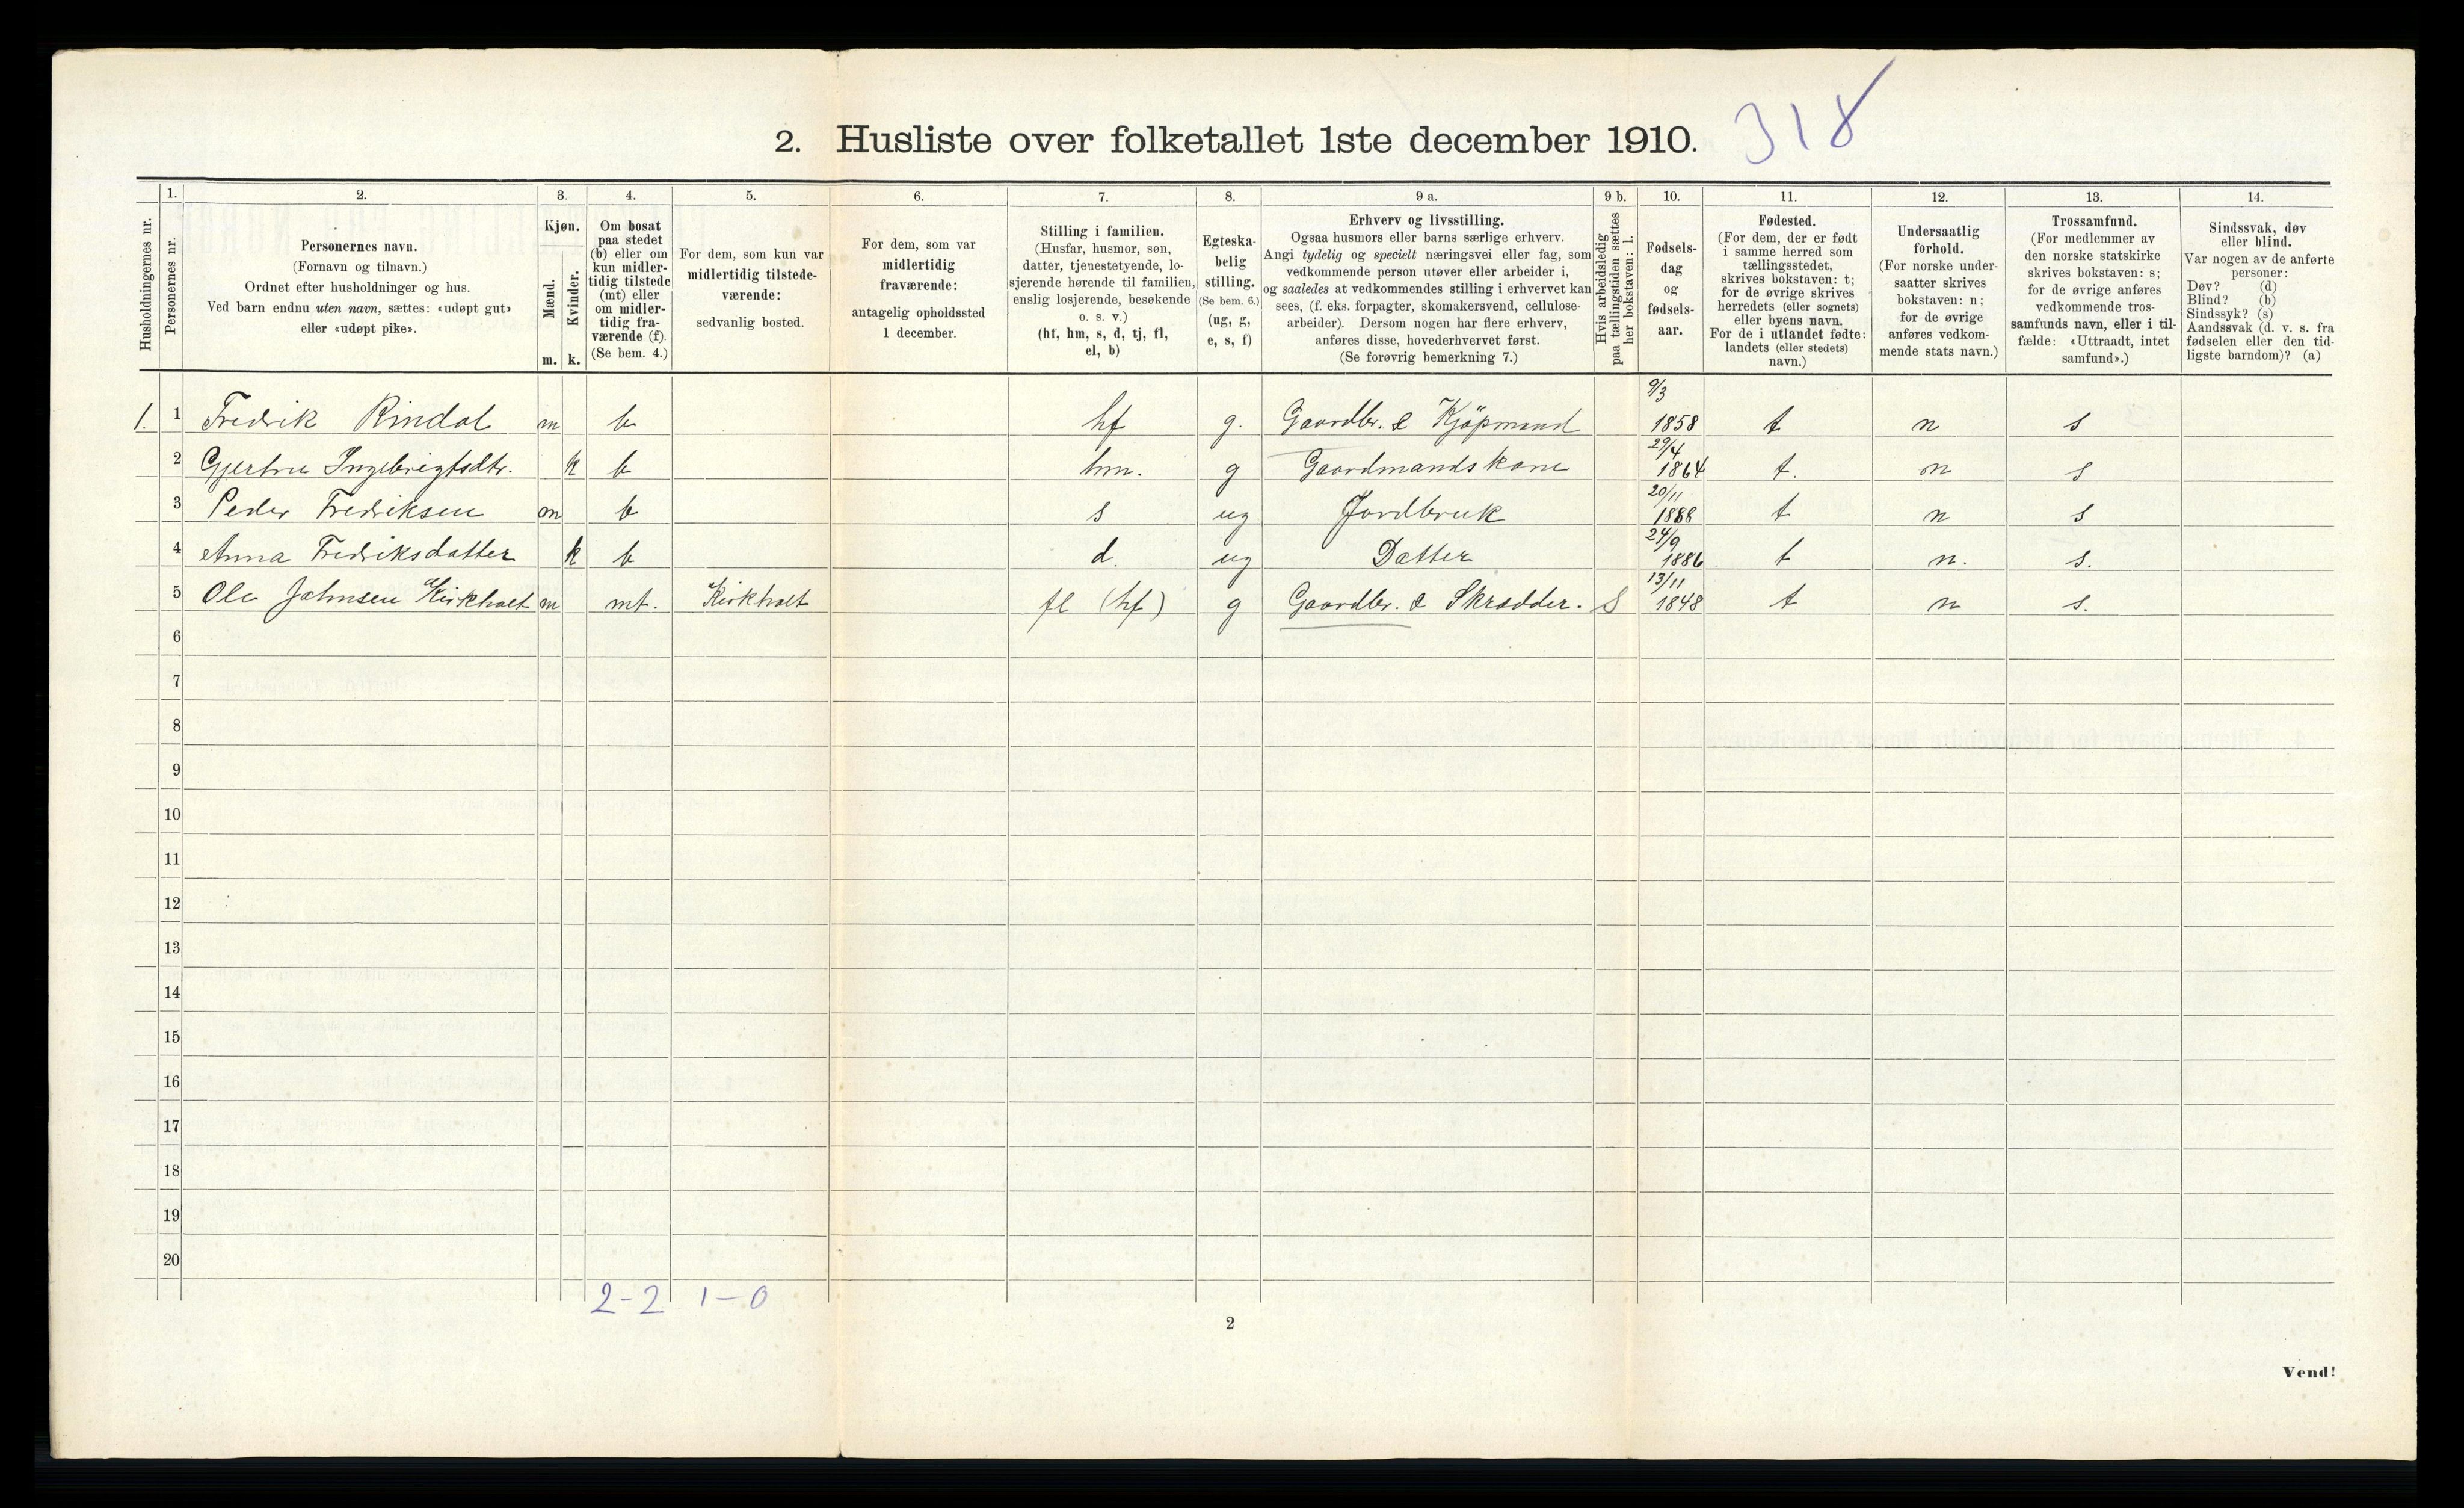 2. Husliste over folketallet 1ste december 1910. 318
1. 2. 3. 4. 5. 6. 7. 8. 9 a. 9 b. 10. 11. 12. 13. 14.
Husholdningernes nr.
Personernes nr.
Personernes navn.
(Fornavn og tilnavn.)
Ordnet efter husholdninger og hus.
Ved barn endnu uten navn, sættes: «udøpt gut»
eller «udøpt pike».
Kjøn.
Mænd.
Kvinder.
m. k.
Om bosat
paa stedet
(b) eller om
kun midler-
tidig tilstede
(mt) eller
om midler-
tidig fra-
værende (f).
(Se bem. 4.)
For dem, som kun var
midlertidig tilstede-
værende:
sedvanlig bosted.
For dem, som var
midlertidig
fraværende:
antagelig opholdssted
1 december.
Stilling i familien.
(Husfar, husmor, søn,
datter, tjenestetyende, lo-
sjerende hørende til familien,
enslig losjerende, besøkende
o. s. v.)
(hf, hm, s, d, tj, fl,
el, b)
Egteska-
belig
stilling.
(Se bem. 6.)
(ug, g,
e, s, f)
Erhverv og livsstilling.
Ogsaa husmors eller barns særlige erhverv.
Angi tydelig og specielt næringsvei eller fag, som
vedkommende person utøver eller arbeider i,
og saaledes at vedkommendes stilling i erhvervet kan
sees, (f. eks. forpagter, skomakersvend, cellulose-
arbeider). Dersom nogen har flere erhverv,
anføres disse, hovederhvervet først.
(Se forøvrig bemerkning 7.)
Hvis arbeidsledig
paa tællingstiden sættes
her bokstaven: l.
Fødsels-
dag
og
fødsels-
aar.
Fødested.
(For dem, der er født
i samme herred som
tællingsstedet,
skrives bokstaven: t;
for de øvrige skrives
herredets (eller sognets)
eller byens navn.
For de i utlandet fødte:
landets (eller stedets)
navn.)
Undersaatlig
forhold.
(For norske under-
saatter skrives
bokstaven: n;
for de øvrige
anføres vedkom-
mende stats navn.)
Trossamfund.
(For medlemmer av
den norske statskirke
skrives bokstaven: s;
for de øvrige anføres
vedkommende tros-
samfunds navn, eller i til-
fælde: «Uttraadt, intet
samfund».)
Sindssvak, døv
eller blind.
Var nogen av de anførte
personer:
Døv? (d)
Blind? (b)
Sindssyk? (s)
Aandssvak (d. v. s. fra
fødselen eller den tid-
ligste barndom)? (a)
1. 1 Fredrik Rindal m b hf g. Gaardbr. & Kjöpmand 9/3 1858 t n s
2 Gjertru Ingebrigtsdtr. k b hm. g Gaardmandskone 29/4 1864 t. n s
3 Peder Fredriksen m b s ug Jordbruk 20/11 1888 t n s
4 Anna Fredriksdatter k b d. ug Datter 24/9 1886 t n. s.
5 Ole Johnsen Kirkholt m mt. Kirkholt fl (hf) g Gaardbr. & Skrædder. S 13/11 1848 t n s.
6
7
8
9
10
11
12
13
14
15
16
17
18
19
20
2-2 1-0
2
Vend!